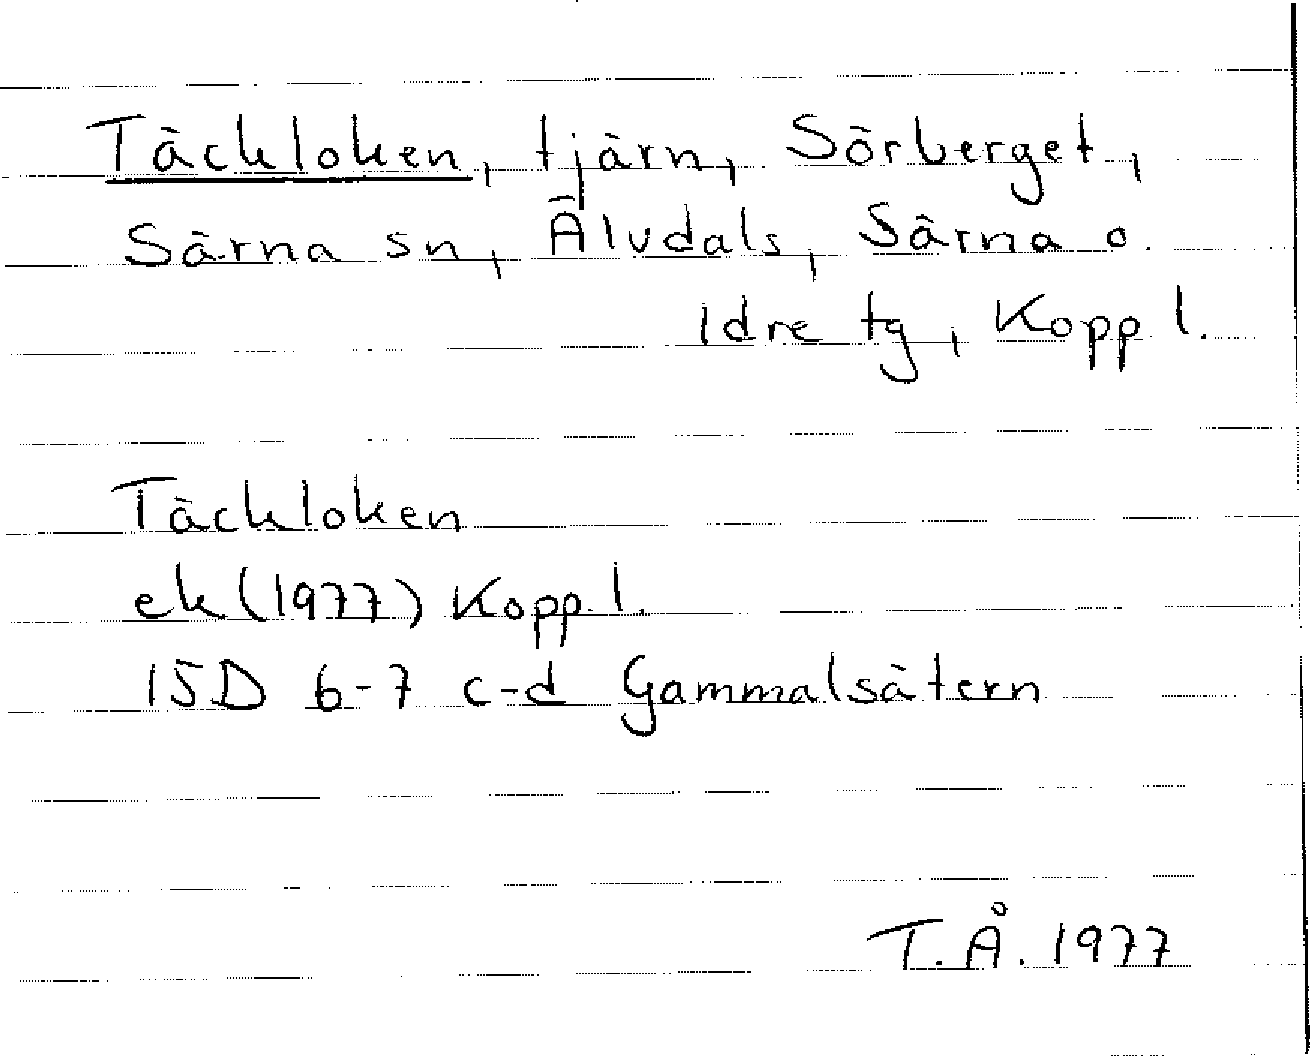 Täckloken, tjärn, Sörberget,
Särna sn, Älvdals, Särna o.
Idre tg, Kopp l.
Täckloken
ek (1977) Kopp. l.
15D 6-7 c-d Gammalsätern
T.Å. 1977